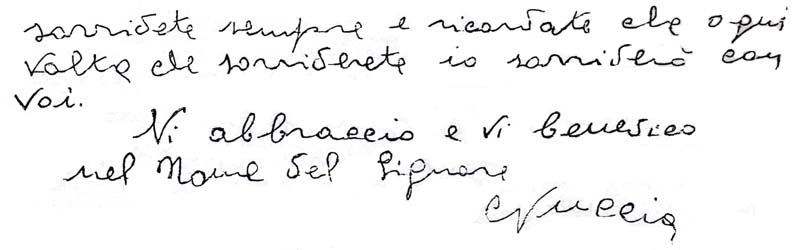 sorridete sempre e ricordate che ogni
volta che sorriderete io sorriderò con
voi.
Vi abbraccio e vi benedico
nel Nome del Signore
Nuccia